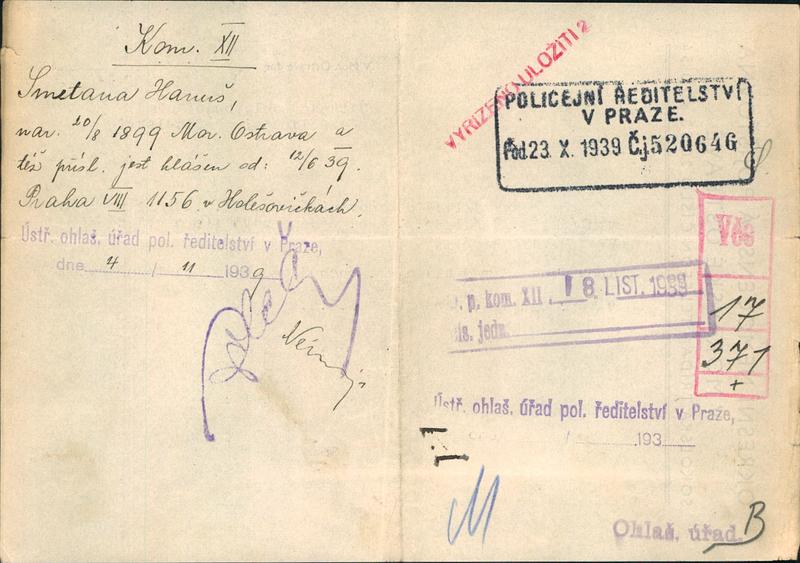 Kom. XII
Smetana Hanuš,
nar. 20/8 1899 Mor. Ostrava a
též přísl. jest hlášen od: 12/6 39.
Praha VIII 1156 v Holešovičkách.
Ústř. ohlaš. úřad pol. ředitelství v Praze,
dne 4 / 11 1939
VYŘÍZENO ULOŽITI 2
POLICEJNÍ ŘEDITELSTVÍ
V PRAZE.
Pod. 23. X. 1939 Čj 520646
Věc
17
371
+
p. kom. XII 18 LIST. 1939
čís. jedn.
Ústř. ohlaš. úřad pol. ředitelství v Praze,
/ 193
M
Ohlaš. úřad. B